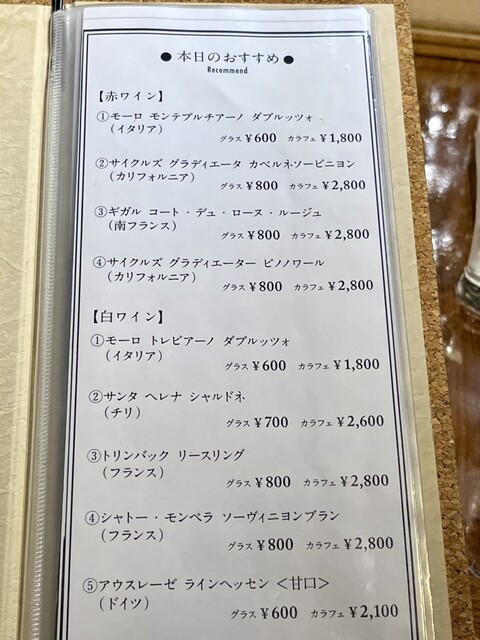 ●本日のおすすめ●
Recommend
【赤ワイン】
①モーロ モンテプルチアーノ ダブルッツォ
（イタリア）
グラス ¥600 カラフェ ¥1,800
②サイクルズ グラディエータ カベルネソービニヨン
（カリフォルニア）
グラス ¥800 カラフェ ¥2,800
③ギガル コート・デュ・ローヌ・ルージュ
（南フランス）
グラス ¥800 カラフェ ¥2,800
④サイクルズ グラディエーター ピノノワール
（カリフォルニア）
グラス ¥800 カラフェ ¥2,800
【白ワイン】
①モーロ トレビアーノ ダブルッツォ
（イタリア）
グラス ¥600 カラフェ ¥1,800
②サンタ ヘレナ シャルドネ
（チリ）
グラス ¥700 カラフェ ¥2,600
③トリンバック リースリング
（フランス）
グラス ¥800 カラフェ ¥2,800
④シャトー・モンペラ ソーヴィニヨンブラン
（フランス）
グラス ¥800 カラフェ ¥2,800
⑤アウスレーゼ ラインヘッセン＜甘口＞
（ドイツ）
グラス ¥600 カラフェ ¥2,100